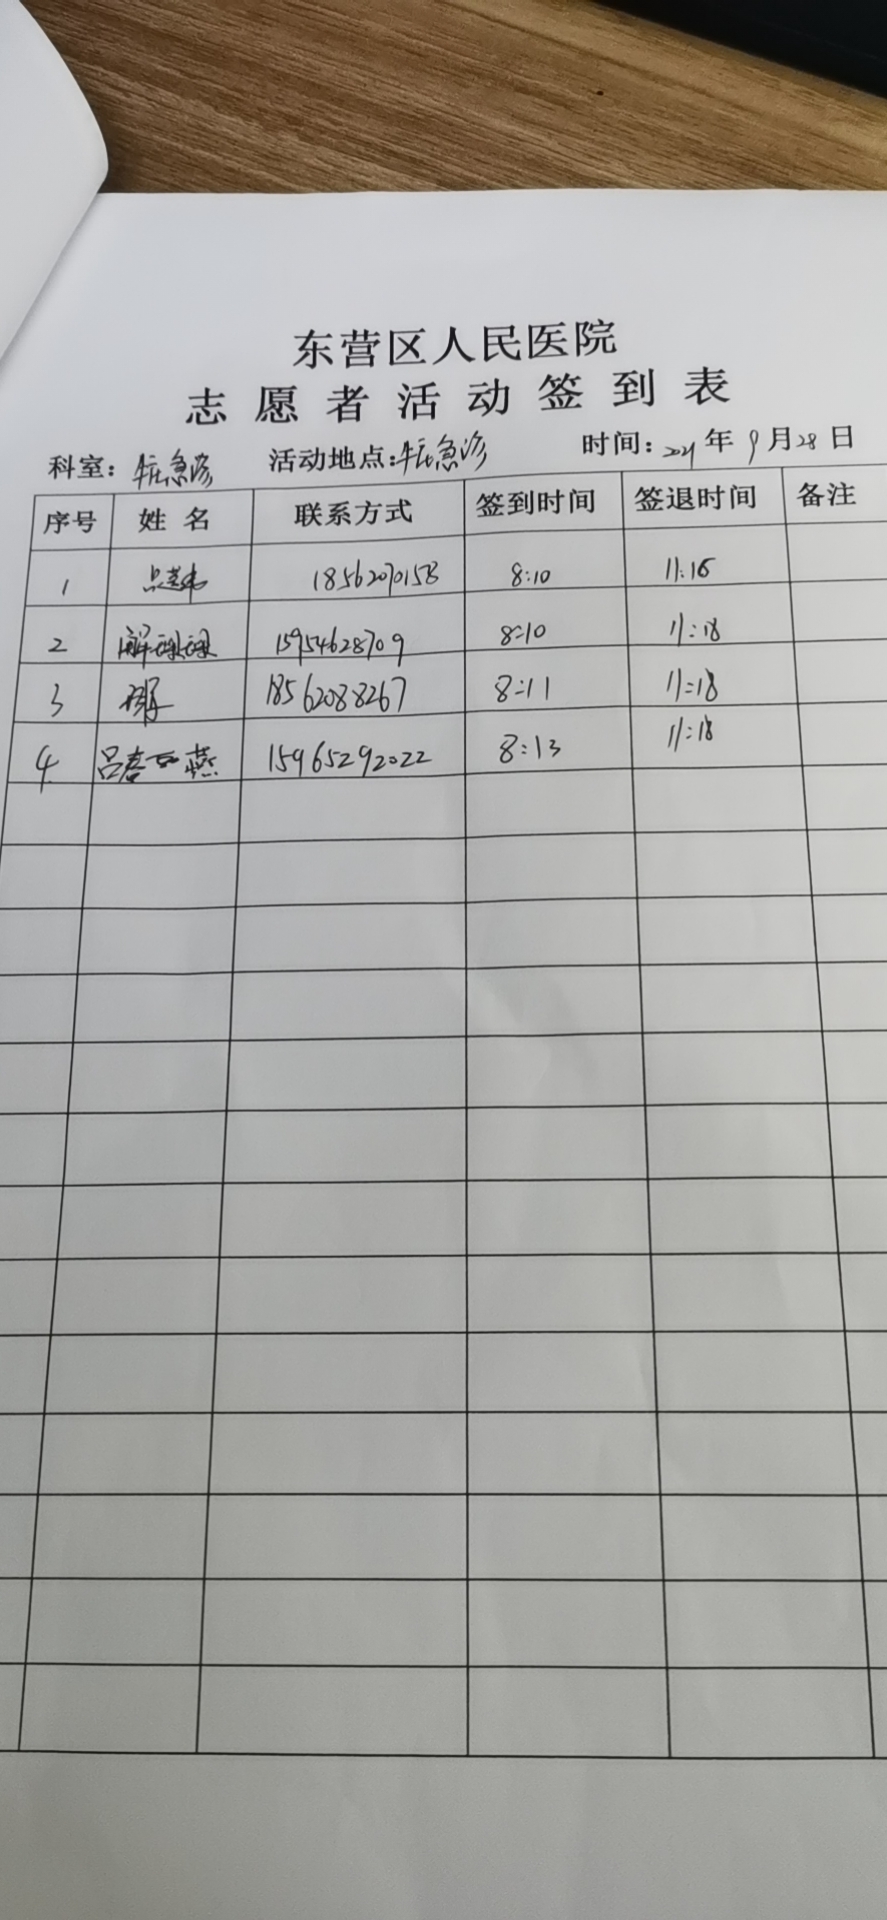 东营区人民医院
志愿者活动签到表
科室: 急诊 活动地点: 急诊 时间: 2021年9月28日
序号 姓名 联系方式 签到时间 签退时间 备注
1 8:10 11:16
2 解 15954628709 8:10 11:18
3 18562088267 8:11 11:18
4 吕春燕 15965292022 8:13 11:18